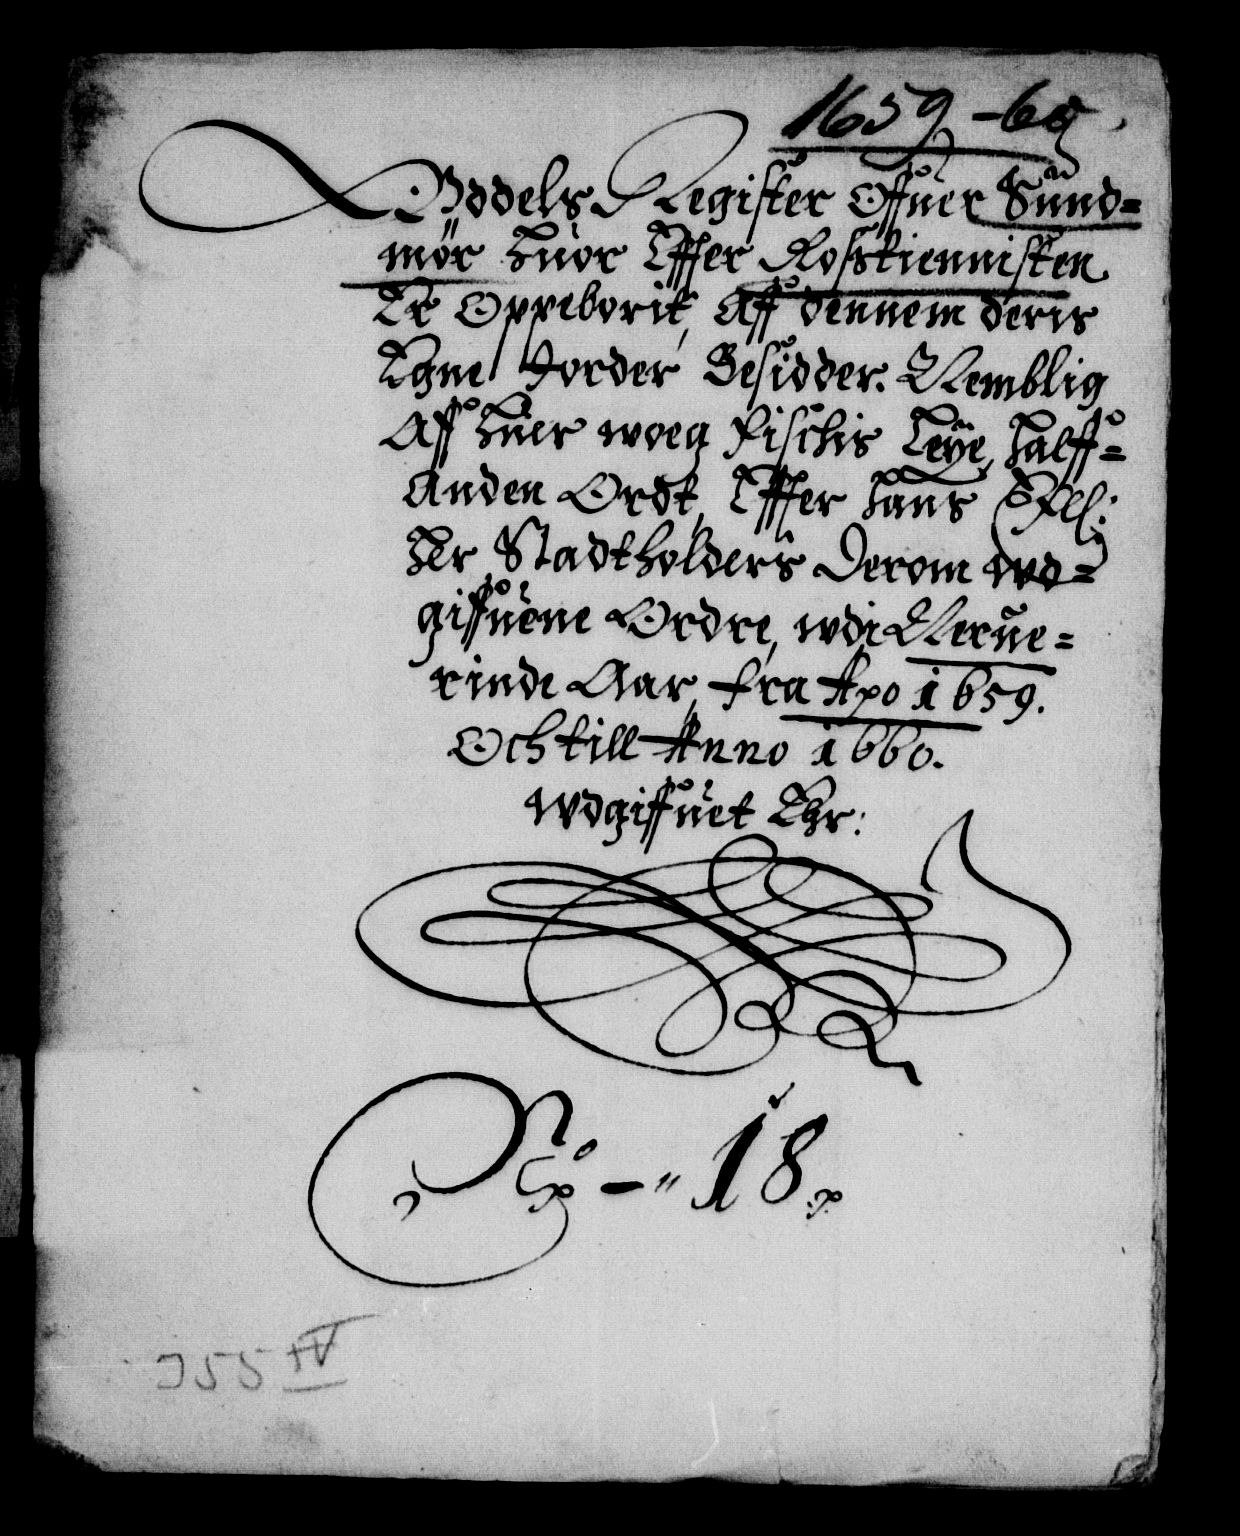 1659-60.
Oddels Register Offuer Sund=
mör Huor Effter Rosstiennisten
Er Oppeborit, Aff dennem deris
Egne Jorder Besidder. Nemblig
Aff Huer woeg Fischis Leye, Halff=
Anden Ordt, Effter Hans Exel:
Her Stadtholders Derom wd=
giffuene Ordre, wdi Nerue=
rinde Aar, fra Apo 1659.
Och till Anno 1660.
Wdgiffuet Ehr:
No - 18
355 IV